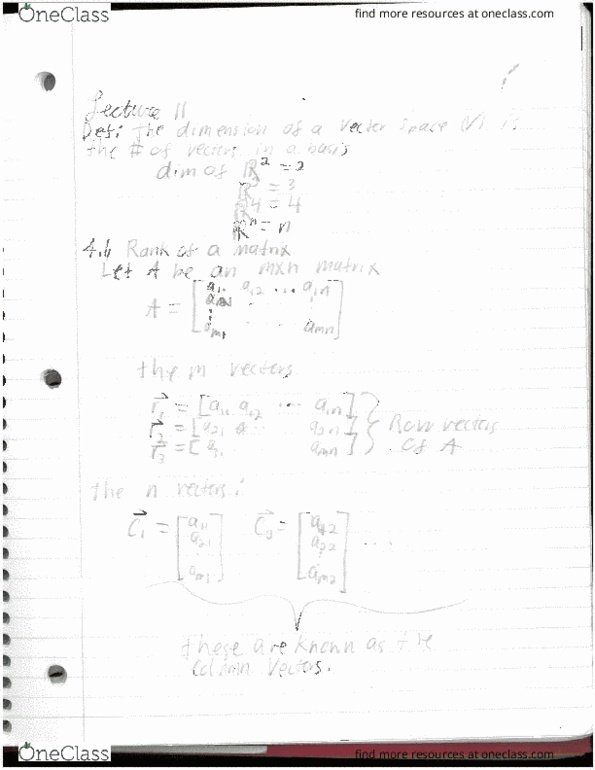 OneClass
find more resources at oneclass.com
Lecture 11
Def: the dimension of a vector space (V) is
the # of vectors in a basis
dim of ℝ² = 2
ℝ³ = 3
ℝ⁴ = 4
ℝⁿ = n
4.4 Rank of a matrix
Let A be an mxn matrix
A = [a₁₁ a₁₂ ... a₁ₙ
⋮
aₘ₁ . . aₘₙ]
the m vectors
r⃗₁ = [a₁₁ a₁₂ ... a₁ₙ]
r⃗₂ = [a₂₁ a₂ₙ] Row vectors
r⃗₃ = [ aₘₙ] of A
the n vectors:
C⃗₁ = [a₁₁ a₂₁ aₘ₁] C⃗₂ = [a₁₂ a₂₂ aₘ₂] ...
these are known as the
column vectors.
OneClass
find more resources at oneclass.com